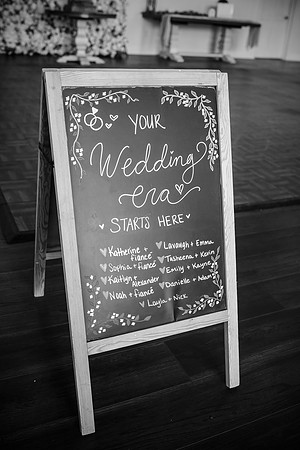 YOUR
Wedding
era
STARTS HERE
Katherine + fiancé
Sophia + fiancé
Kaitlyn + Alexander
Noah + fiancé
Lavaugh + Emma
Tasheena + Kevin
Emily + Kayne
Danielle + Adam
Layla + Nick